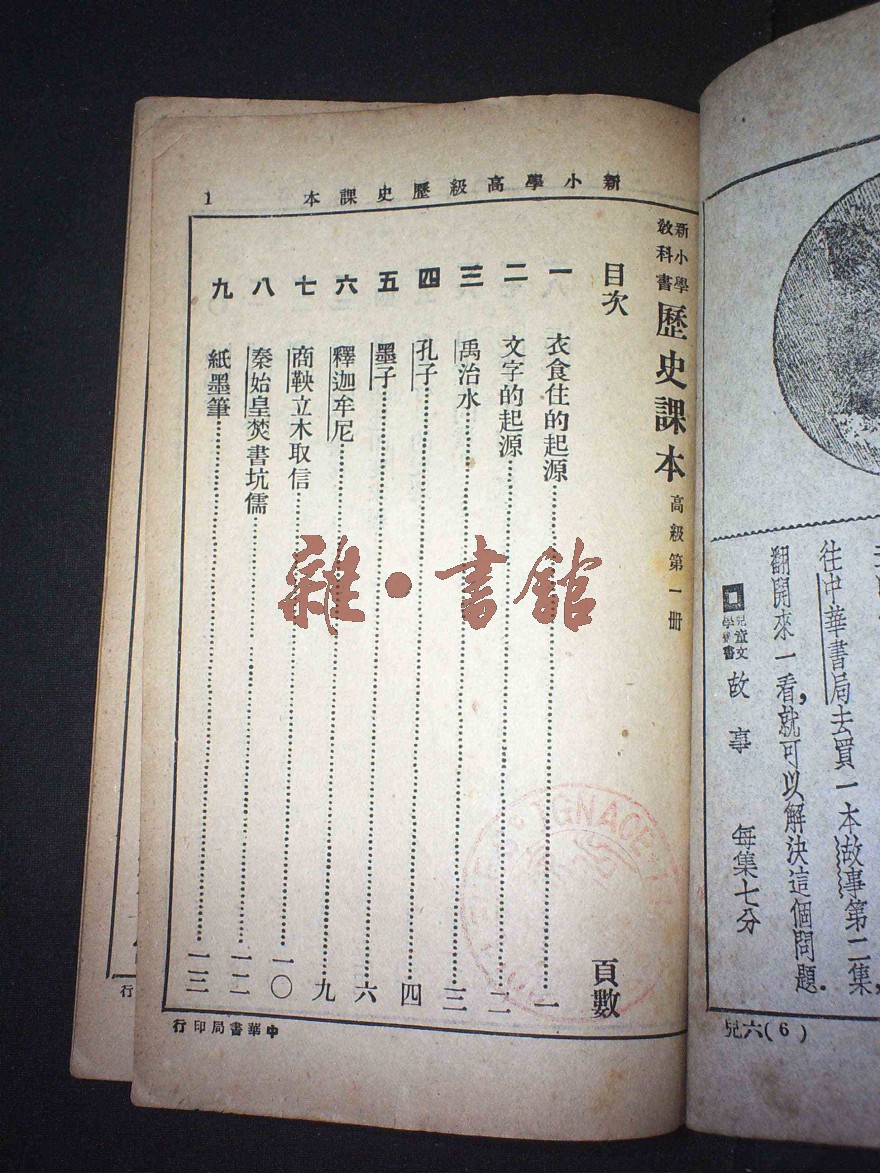 新小學高級歷史課本 1
新小學教科書 歷史課本 高級第一冊
目次 頁數
一 衣食住的起源 一
二 文字的起源 二
三 禹治水 三
四 孔子 四
五 墨子 六
六 釋迦牟尼 九
七 商鞅立木取信 一〇
八 秦始皇焚書坑儒 一二
九 紙墨筆 一三
中華書局印行
往中華書局去買一本故事第二集,
翻開來一看,就可以解決這個問題.
兒童文學叢書 故事 每集七分
兒六(6)
行
IGNACE
雜·書館